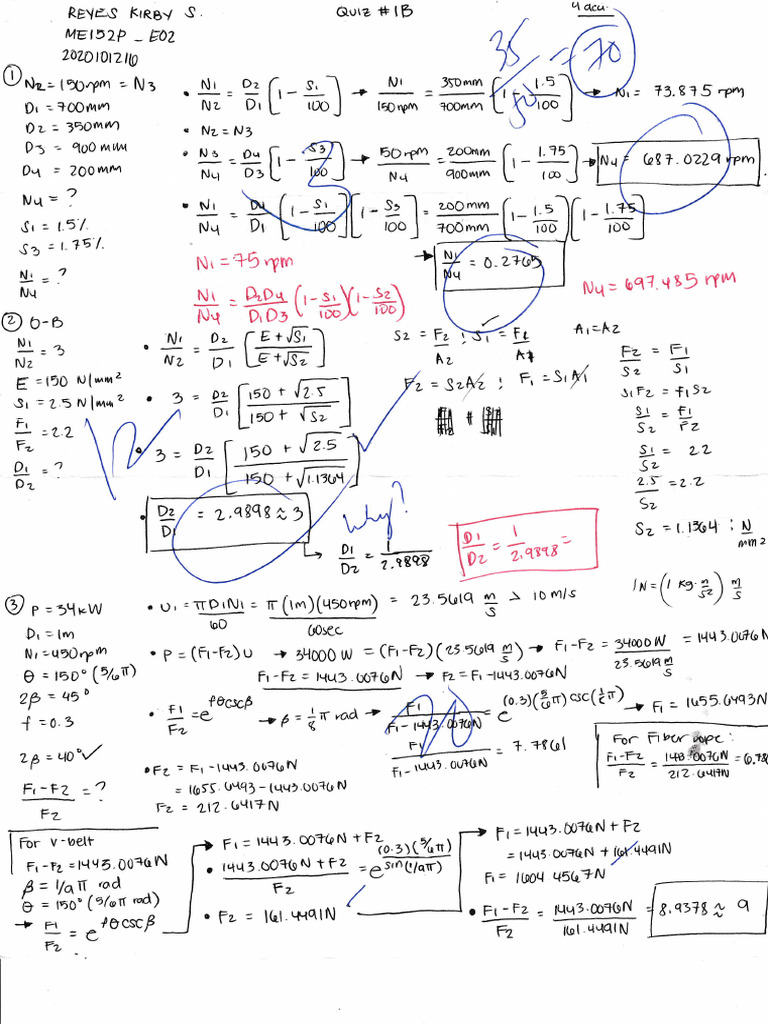 REYES KIRBY S. QUIZ #1B 4 acu.
ME152P_E02
2020101216
35/50 = 70
① N2 = 150rpm = N3
D1 = 700mm
D2 = 350mm
D3 = 900mm
D4 = 200mm
N4 = ?
S1 = 1.5%
S3 = 1.75%
N1/N4 = ?
• N1/N2 = D2/D1 [1 - S1/100] → N1/150rpm = 350mm/700mm [1 - 1.5/100] → N1 = 73.875 rpm
• N2 = N3
• N3/N4 = D4/D3 [1 - S3/100] → 150rpm/N4 = 200mm/900mm [1 - 1.75/100] → N4 = 687.0229 rpm
• N1/N4 = D4/D1 [1 - S1/100][1 - S3/100] = 200mm/700mm [1 - 1.5/100][1 - 1.75/100]
→ N1/N4 = 0.2765
N1 = 75 rpm
N1/N4 = D2D4/D1D3 (1 - S1/100)(1 - S2/100)
N4 = 697.485 rpm
② O-B
N1/N2 = 3
E = 150 N/mm²
S1 = 2.5 N/mm²
F1/F2 = 2.2
D1/D2 = ?
• N1/N2 = D2/D1 [E + √S1 / E + √S2]
• 3 = D2/D1 [150 + √2.5 / 150 + √S2]
• 3 = D2/D1 [150 + √2.5 / 150 + √1.1364]
• D2/D1 = 2.9898 ≈ 3
→ D1/D2 = 1/2.9898
Why?
D1/D2 = 1/2.9898 =
S2 = F2/A2 ; S1 = F1/A1 A1 = A2
F2 = S2A2 ; F1 = S1A1
F2/S2 = F1/S1
S1F2 = F1S2
S1/S2 = F1/F2
S1/S2 = 2.2
2.5/S2 = 2.2
S2 = 1.1364 ; N/mm²
1N = (1 kg · m/s²) m/s
③ P = 34kW
D1 = 1m
N1 = 450rpm
θ = 150° (5/6π)
2β = 45°
f = 0.3
2β = 40° ✓
F1-F2/F2 = ?
• υ1 = πD1N1/60 = π(1m)(450rpm)/60sec = 23.5619 m/s > 10 m/s
• P = (F1-F2)υ → 34000W = (F1-F2)(23.5619 m/s) → F1-F2 = 34000W/23.5619 m/s = 1443.0076N
F1-F2 = 1443.0076N → F2 = F1-1443.0076N
• F1/F2 = e^fθcscβ → β = 1/8 π rad → F1/F1-1443.0076N = e^(0.3)(5/6π)csc(1/8π) → F1 = 1655.6493N
F1/F1-1443.0076N = 7.7861
• F2 = F1-1443.0076N
= 1655.6493-1443.0076N
F2 = 212.6417N
For Fiber rope:
F1-F2/F2 = 1443.0076N/212.6417N = 6.78
For v-belt
F1-F2 = 1443.0076N
β = 1/9π rad
θ = 150° (5/6π rad)
→ F1/F2 = e^fθcscβ
→ F1 = 1443.0076N + F2
• 1443.0076N + F2/F2 = e^(0.3)(5/6π)/sin(1/9π)
• F2 = 161.4491N
→ F1 = 1443.0076N + F2
= 1443.0076N + 161.4491N
F1 = 1604.4567N
• F1-F2/F2 = 1443.0076N/161.4491N = 8.9378 ≈ 9